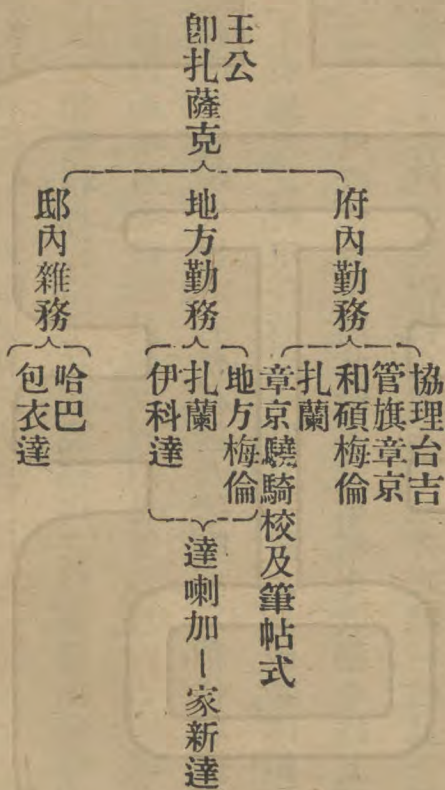 王公
即扎薩克
府內勤務
協理台吉
管旗章京
和碩梅倫
扎蘭
章京驍騎校及筆帖式
地方勤務
地方梅倫
扎蘭
伊科達
達喇加－家新達
邸內雜務
哈巴
包衣達